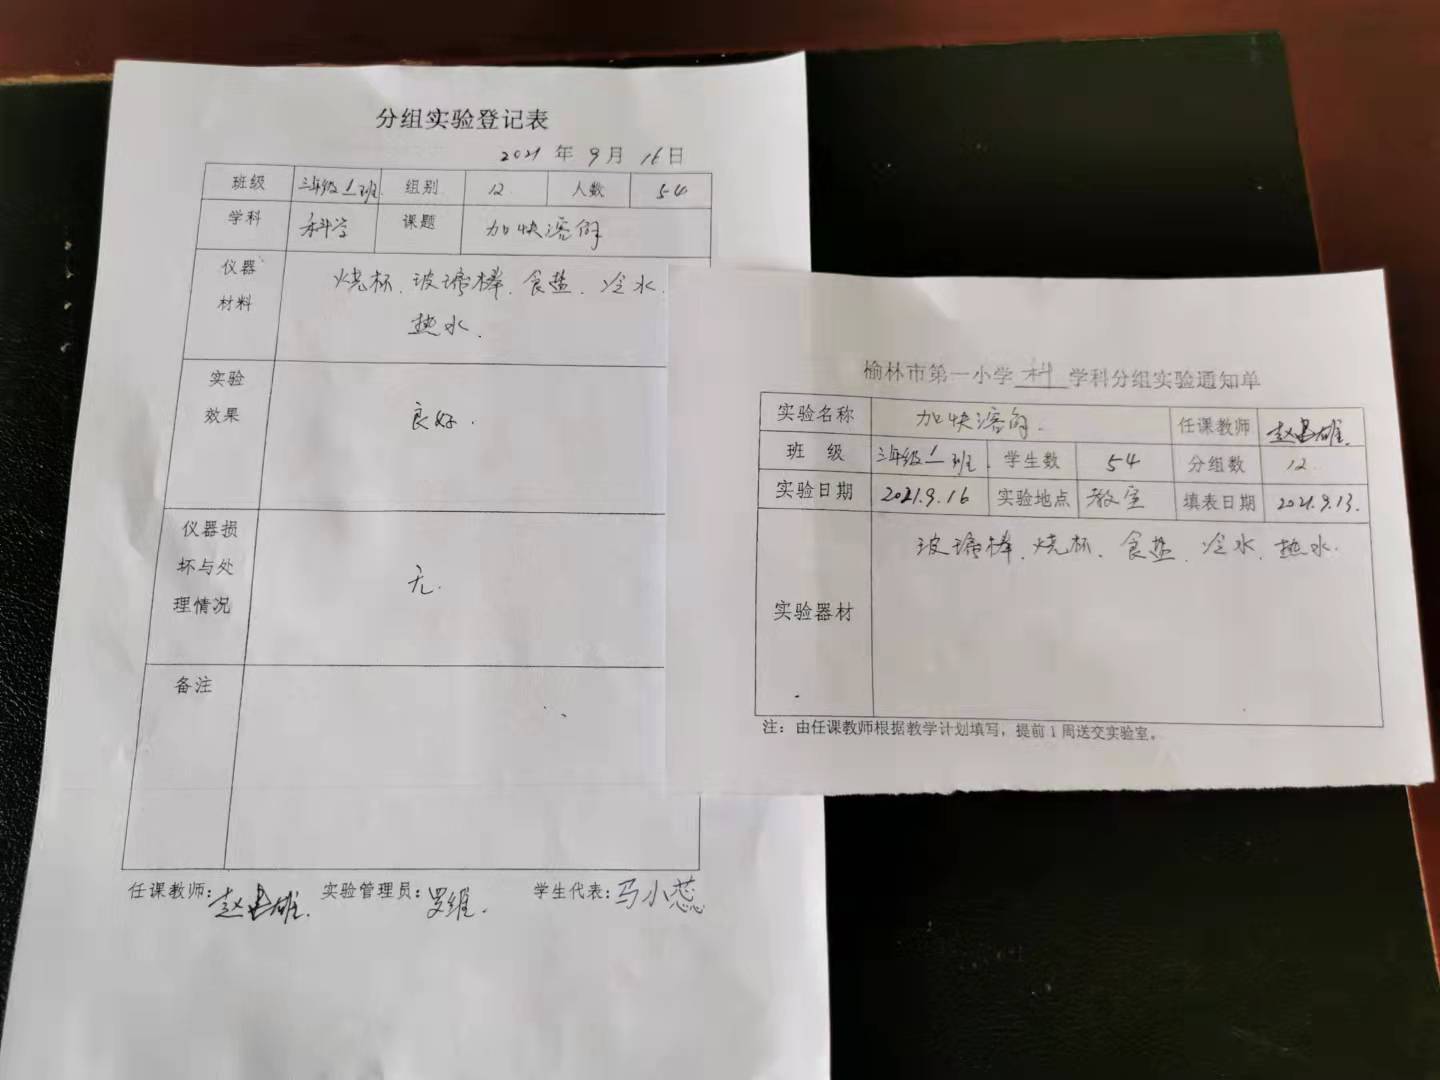 分组实验登记表
2021 年 9 月 16 日
班级 三年级1班 组别 12 人数 54
学科 科学 课题 加快溶解
仪器材料 烧杯、玻璃棒、食盐、冷水、
热水.
实验效果 良好.
仪器损坏与处理情况 无.
备注
任课教师: 赵 雄. 实验管理员: 罗维. 学生代表: 马小蕊
榆林市第一小学 科 学科分组实验通知单
实验名称 加快溶解. 任课教师 赵 雄.
班 级 三年级1班. 学生数 54 分组数 12.
实验日期 2021.9.16 实验地点 教室 填表日期 2021.9.13.
实验器材 玻璃棒、烧杯、食盐、冷水、热水.
注: 由任课教师根据教学计划填写, 提前 1 周送交实验室。